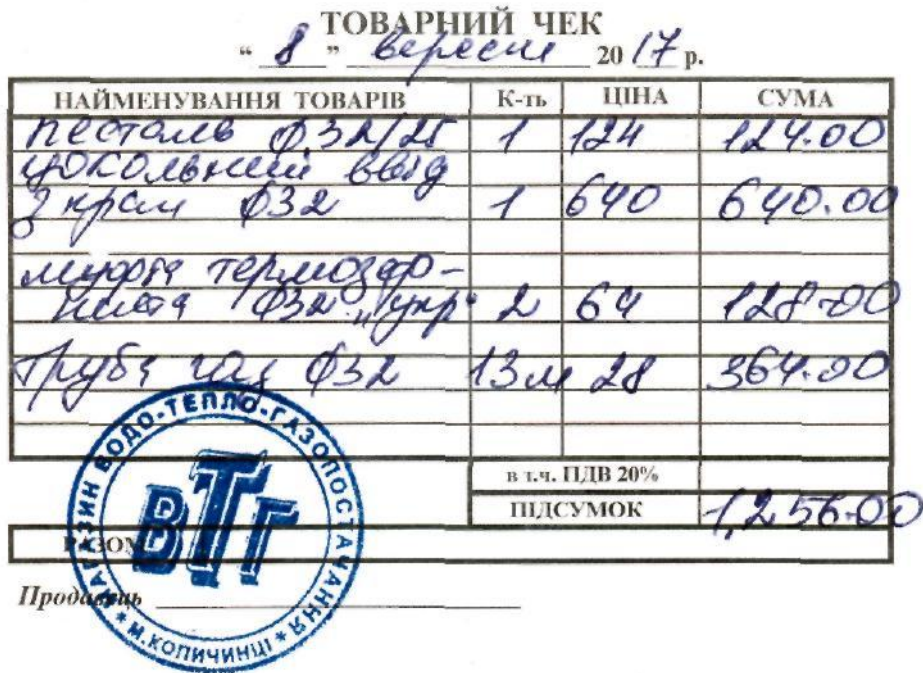 ТОВАРНИЙ ЧЕК
" 8 " вересня 2017 р.
НАЙМЕНУВАННЯ ТОВАРІВ К-ть ЦІНА СУМА
Ф32/25 1 124 124.00
цокольний ввід
з кран Ф32 1 640 640.00
муфта термозва-
Ф32 "укр" 2 64 128-00
Труба газ Ф32 13м 28 364.00
в т.ч. ПДВ 20%
ПІДСУМОК 1,256-00
РАЗОМ
Продавець
МАГАЗИН ВОДО-ТЕПЛО-ГАЗОПОСТАЧАННЯ
ВТГ
* М.КОПИЧИНЦІ *